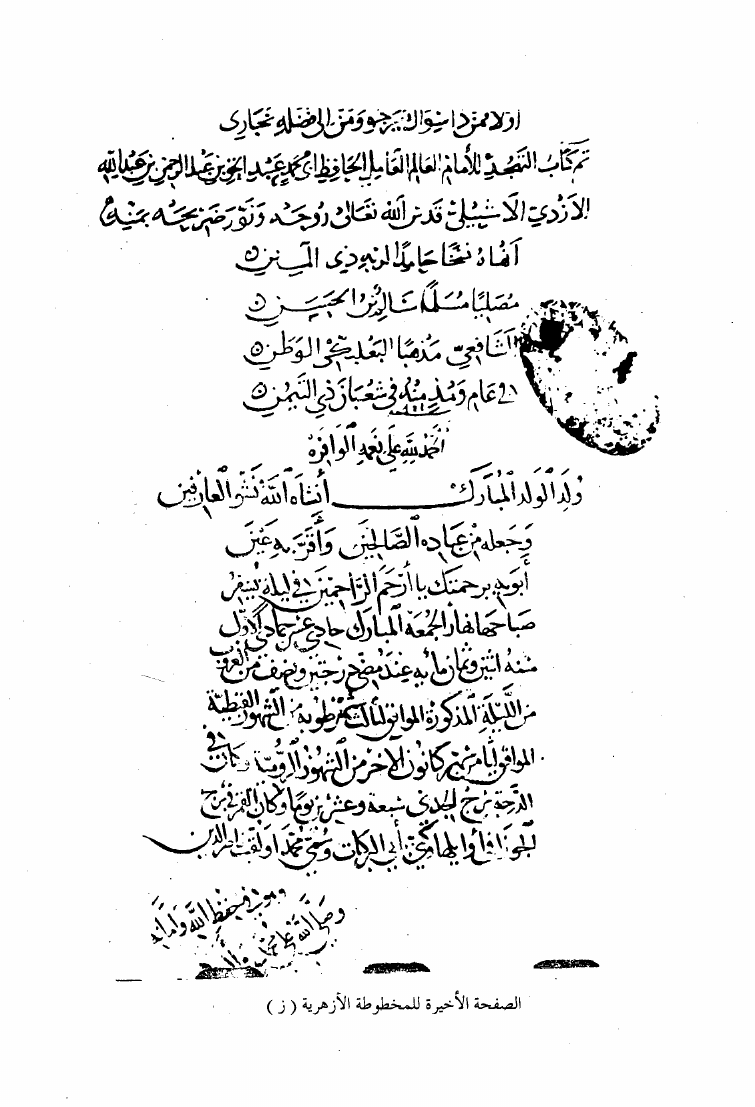 أولا ممن ذا سواك يرجو ومن إلى فضله
تم كتاب التهجد للأمام العالم العامل الحافظ ابى محمد عبد الحق بن عبد الرحمن بن عبد الله
الازدي الاشبيلي قدس الله تعالى روحه ونور ضريحه بمنه
حامدا لربه ذي المنن
مصليا مسلما
الشافعي مذهبا البعلبكي الوطن
في عام في شعبان ذي اليمن
الحمد لله على نعمه الوافرة
ولد الولد المبارك أنشاه الله نشو العارفين
وجعله من عباده الصالحين وأقر به عين
أبويه برحمتك يا أرحم الراحمين في ليلة يسفر
صباحها نهار الجمعة المبارك حادي عشر جمادي الأول
سنة اثنين وثمان مائة عند مضي درجتين ونصف من الغروب
من الليلة المذكورة الموافق لثالث عشر طوبه من الشهور القبطية
الموافق كانون الاخر من الشهور الرومية وكان في
الدرجة برج الجدى سبعة وعشرين يوما وكان القمر في برج
الجوزا أبي البركات محمد
في حفظ الله وأمانه
وصلى الله على محمد
الصفحة الأخيرة للمخطوطة الأزهرية ( ز )